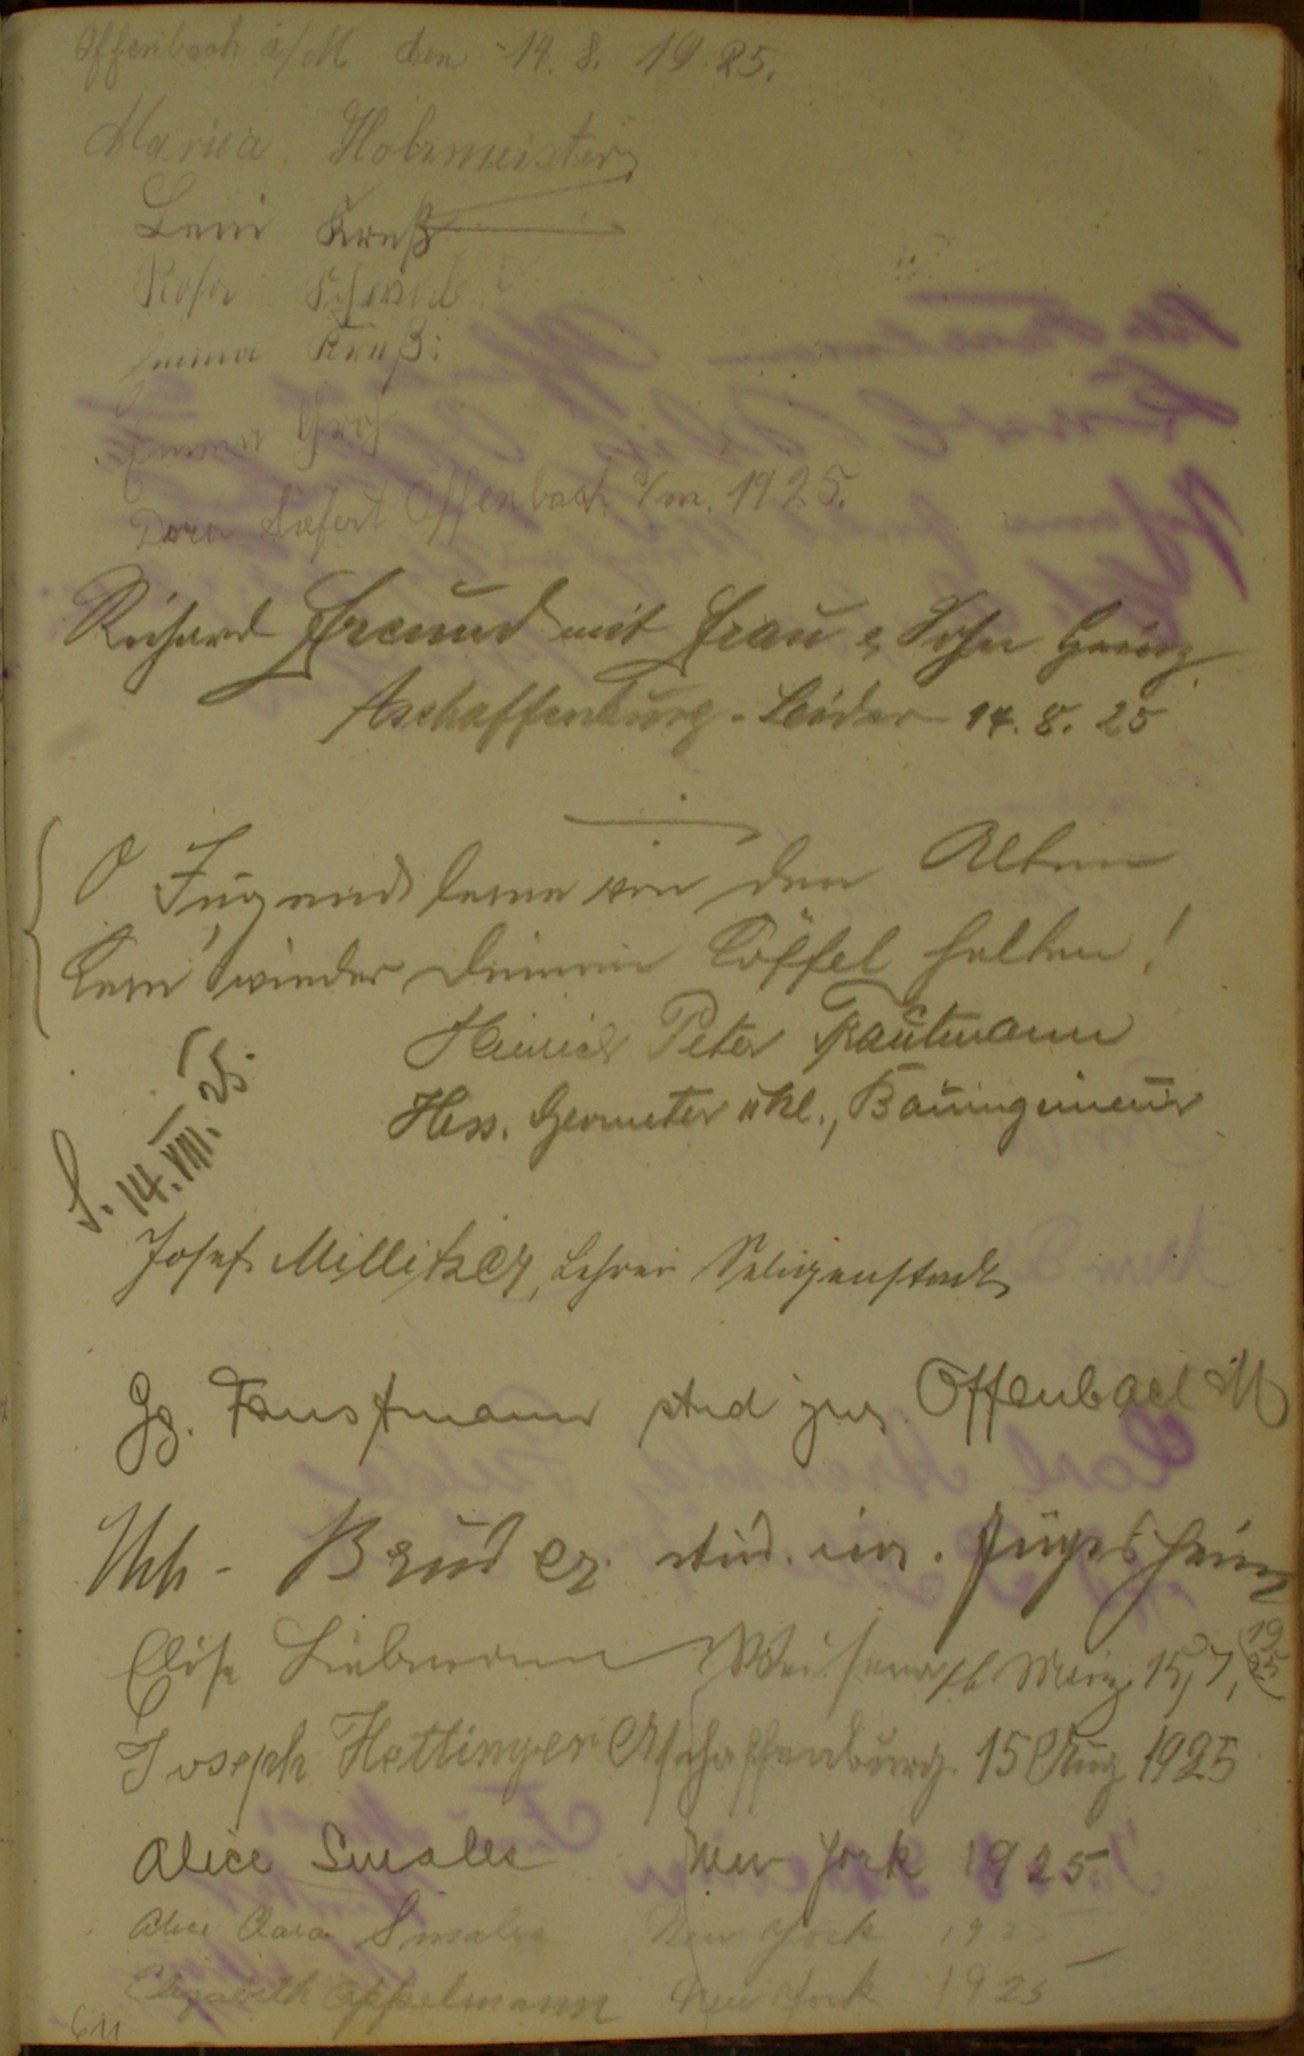 Offenbach a/M den 14. 8. 1925.
Maria Holzmeister
Leni Kreß
Rosa
Emma Kreß.
Emma Groß
Dora Siefert Offenbach a/m. 1925.
Richard Freund mit Frau & Sohn Heinz
Aschaffenburg-Leider 14. 8. 25
O Jugend lerne von den Alten
Lern' wieder Deinen Löffel halten!
Heinrich Peter Trautmann
Hess. Geometer I Kl., Bauingenieur
S. 14. VIII. 25.
Josef Millitzer, Lehrer Seligenstadt
Gg. Faustmann stud jur Offenbach M
Bruder. stud. iur. Jügesheim
Elise Liebmann Weisenau b/ Mainz 15, 7, 1925
Joseph Hettinger Aschaffenburg. 15 Aug 1925
Alice Smales New York 1925
Alice Clara Smales New York 1925
Elizabeth Appelmann New York 1925